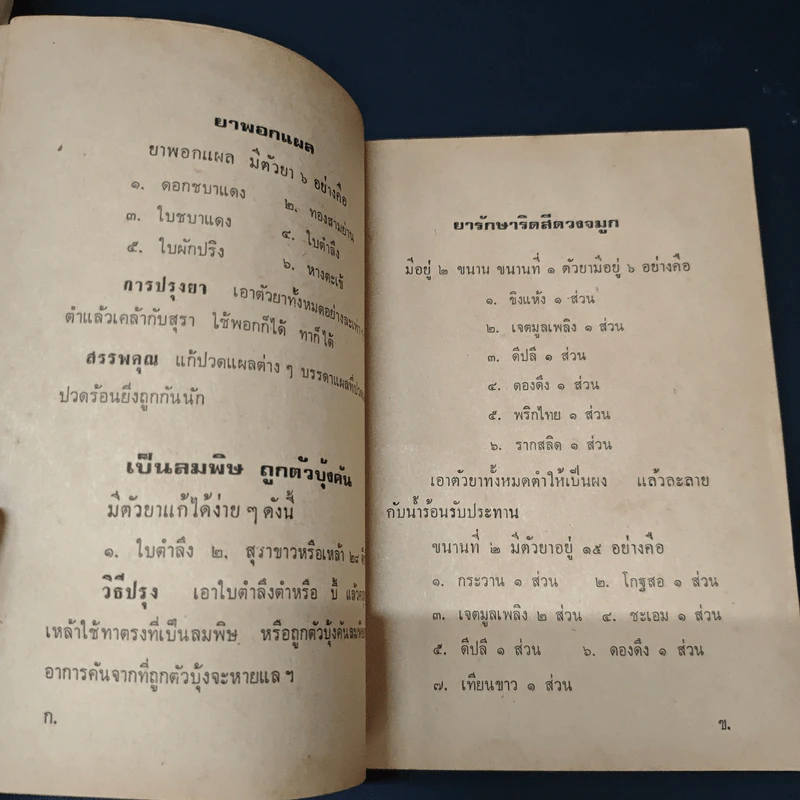 ยาพอกแผล
ยาพอกแผล มีตัวยา ๖ อย่างคือ
๑. ดอกชบาแดง ๒. ทองสามย่าน
๓. ใบชบาแดง ๔. ใบตำลึง
๕. ใบผักปริง ๖. หางตะเข้
การปรุงยา เอาตัวยาทั้งหมดอย่างละเท่า ๆ
ตำแล้วเคล้ากับสุรา ใช้พอกก็ได้ ทาก็ได้
สรรพคุณ แก้ปวดแผลต่าง ๆ บรรดาแผลที่ปวด
ปวดร้อนยิ่งถูกกันนัก
เป็นลมพิษ ถูกตัวบุ้งคัน
มีตัวยาแก้ได้ง่าย ๆ ดังนี้
๑. ใบตำลึง ๒. สุราขาวหรือเหล้า ๒๘
วิธีปรุง เอาใบตำลึงตำหรือ ปี้ แล้ว
เหล้าใช้ทาตรงที่เป็นลมพิษ หรือถูกตัวบุ้งคัน
อาการคันจากที่ถูกตัวบุ้งจะหายแล ฯ
ก.
ยารักษาริดสีดวงจมูก
มีอยู่ ๒ ขนาน ขนานที่ ๑ ตัวยามีอยู่ ๖ อย่างคือ
๑. ขิงแห้ง ๑ ส่วน
๒. เจตมูลเพลิง ๑ ส่วน
๓. ดีปลี ๑ ส่วน
๔. ดองดึง ๑ ส่วน
๕. พริกไทย ๑ ส่วน
๖. รากสลิด ๑ ส่วน
เอาตัวยาทั้งหมดตำให้เป็นผง แล้วละลาย
กับน้ำร้อนรับประทาน
ขนานที่ ๒ มีตัวยาอยู่ ๑๕ อย่างคือ
๑. กระวาน ๑ ส่วน ๒. โกฐสอ ๑ ส่วน
๓. เจตมูลเพลิง ๒ ส่วน ๔. ชะเอม ๑ ส่วน
๕. ดีปลี ๑ ส่วน ๖. ดองดึง ๑ ส่วน
๗. เทียนขาว ๑ ส่วน
ข.